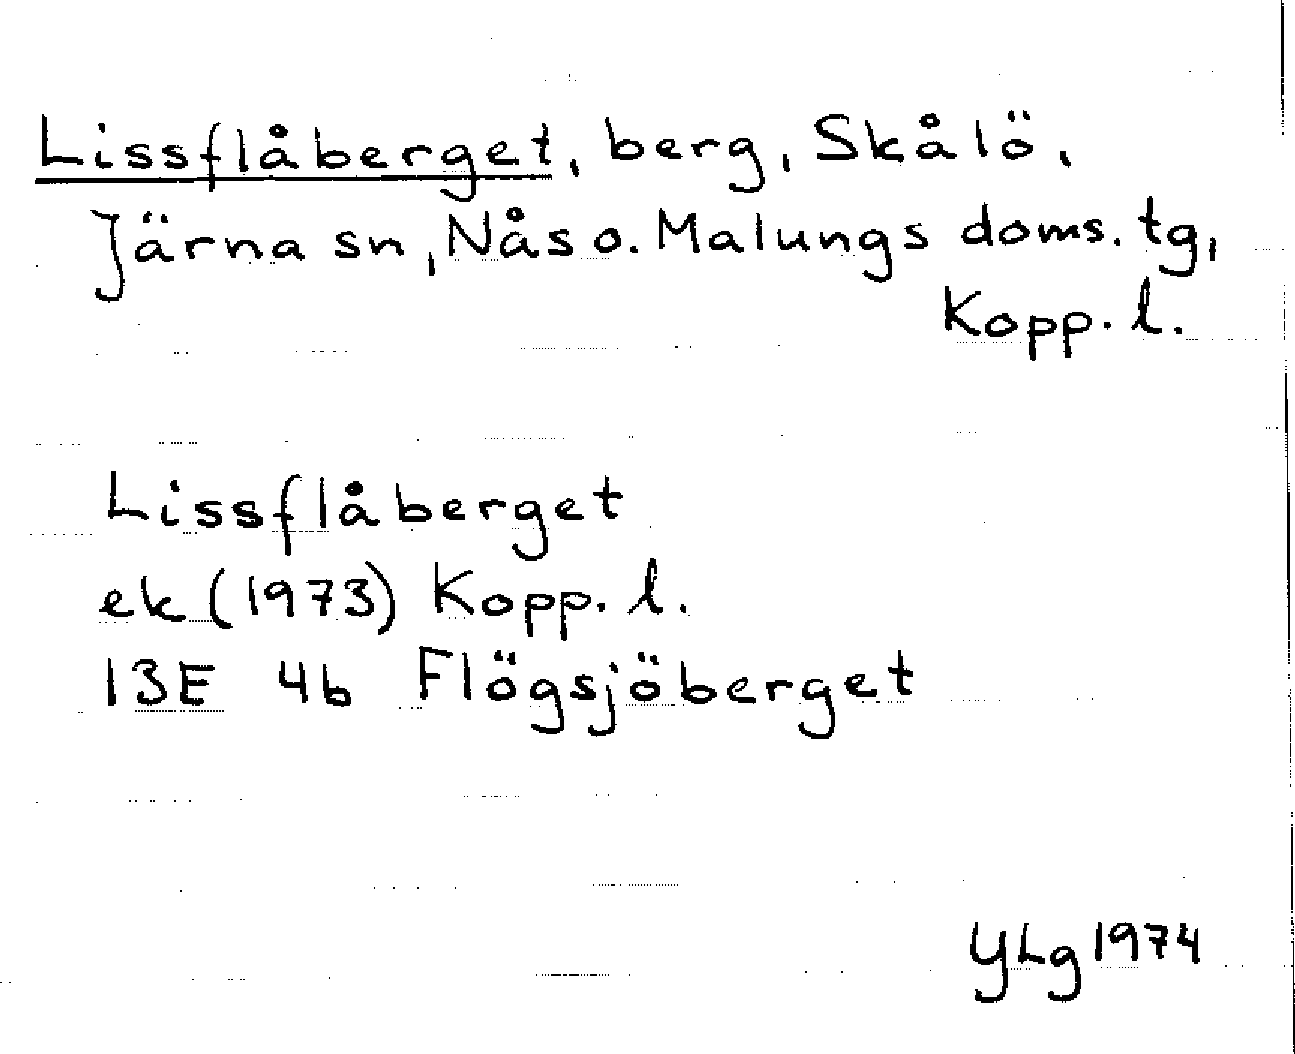 Lissflåberget, berg, Skålö,
Järna sn, Nås o. Malungs doms. tg,
Kopp. l.
Lissflåberget
ek (1973) Kopp. l.
13E 4b Flögsjöberget
YLg 1974